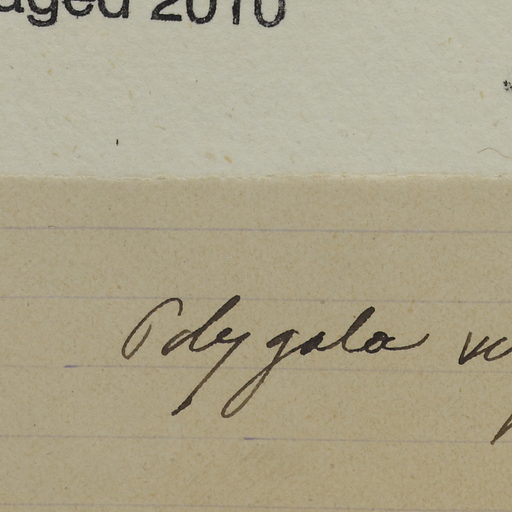 aged 2010
Polygala